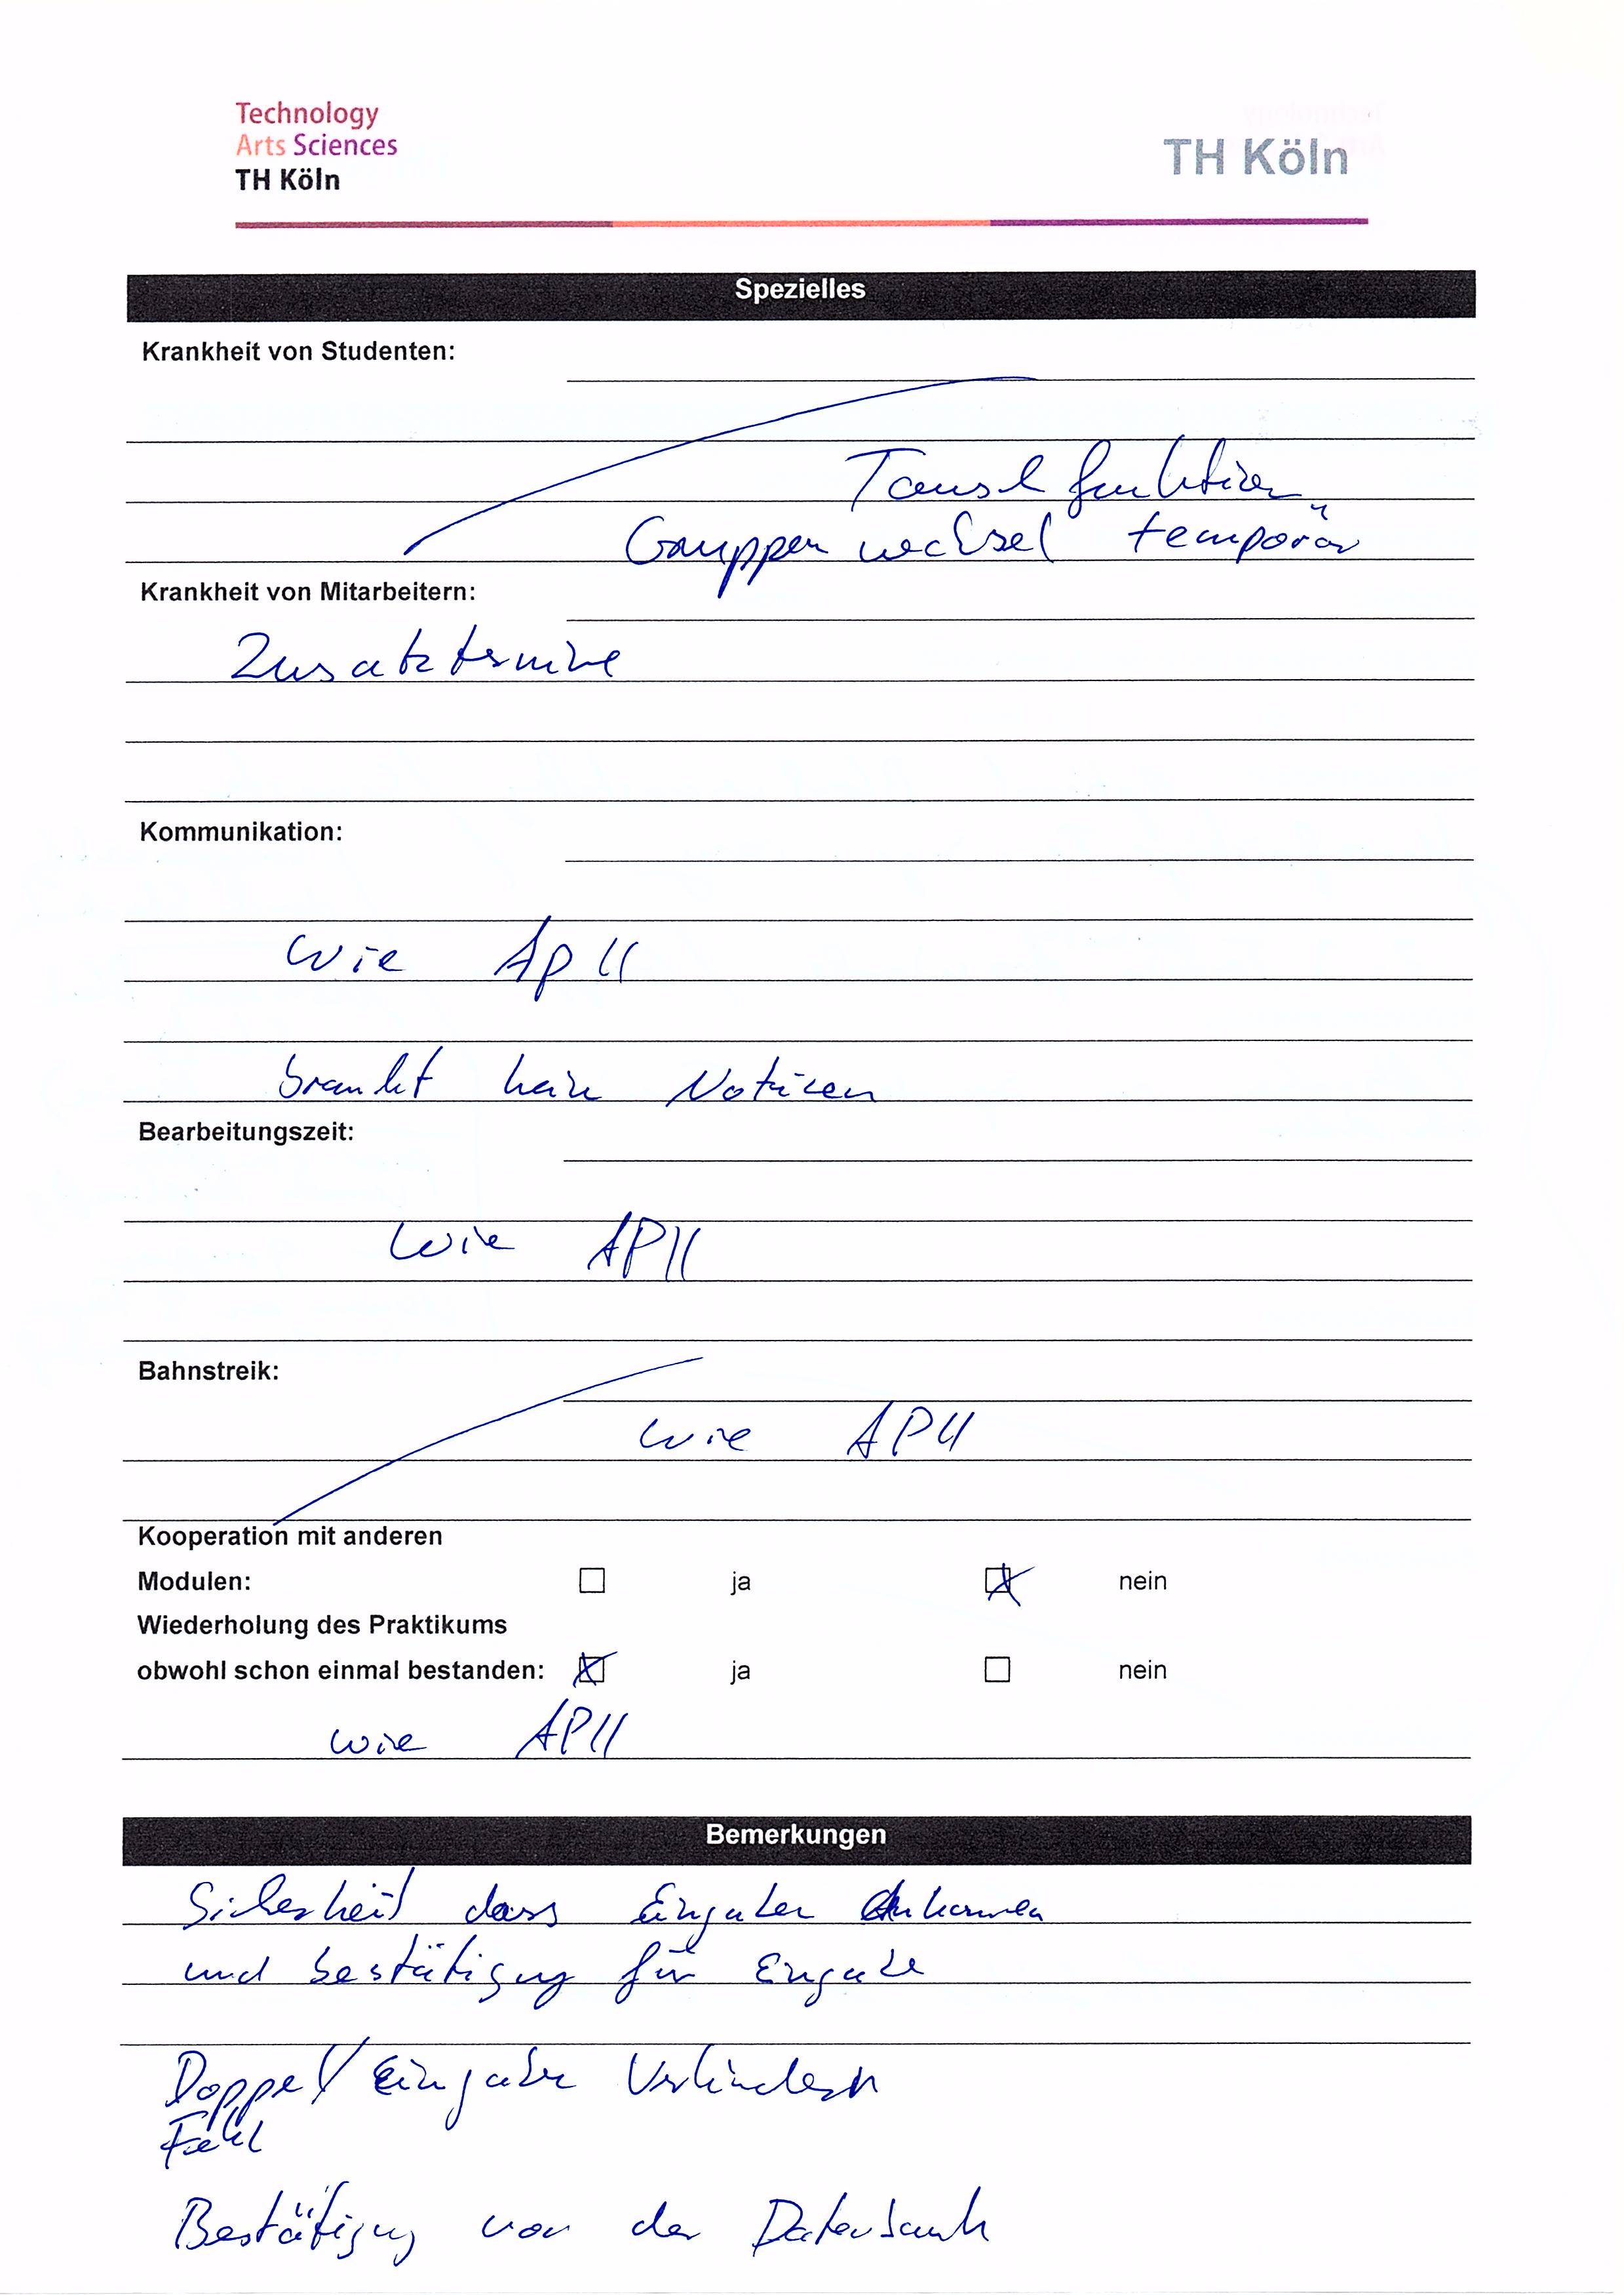 Technology
Arts Sciences
TH Köln
TH Köln
Spezielles
Krankheit von Studenten:
Tauschfunktion
Gruppenwechsel temporär
Krankheit von Mitarbeitern:
Zusatztermine
Kommunikation:
wie AP II
braucht kein Notizen
Bearbeitungszeit:
wie AP II
Bahnstreik:
wie AP II
Kooperation mit anderen
Modulen: ja nein
Wiederholung des Praktikums
obwohl schon einmal bestanden: ja nein
wie AP II
Bemerkungen
Sicherheit dass Eingaben Ankommen
und bestätigung für Eingabe
Doppel/Eingaben Verhindern
Fehl
Bestätigung von der Datenbank